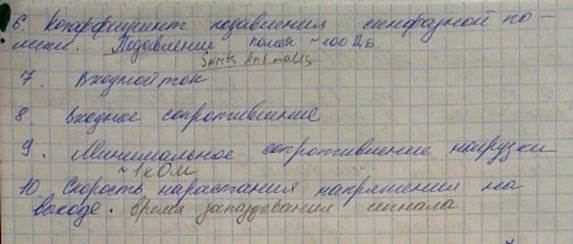 6. Коэффициент подавления синфазной по-
мехи. Подавление помех ~100 Дб.
Spirits Animalis
7. Входной ток
8. входное сопротивление
9. Минимальное сопротивление нагрузки
~1кОм
10. Скорость нарастания напряжения на
выходе. время запаздования сигнала